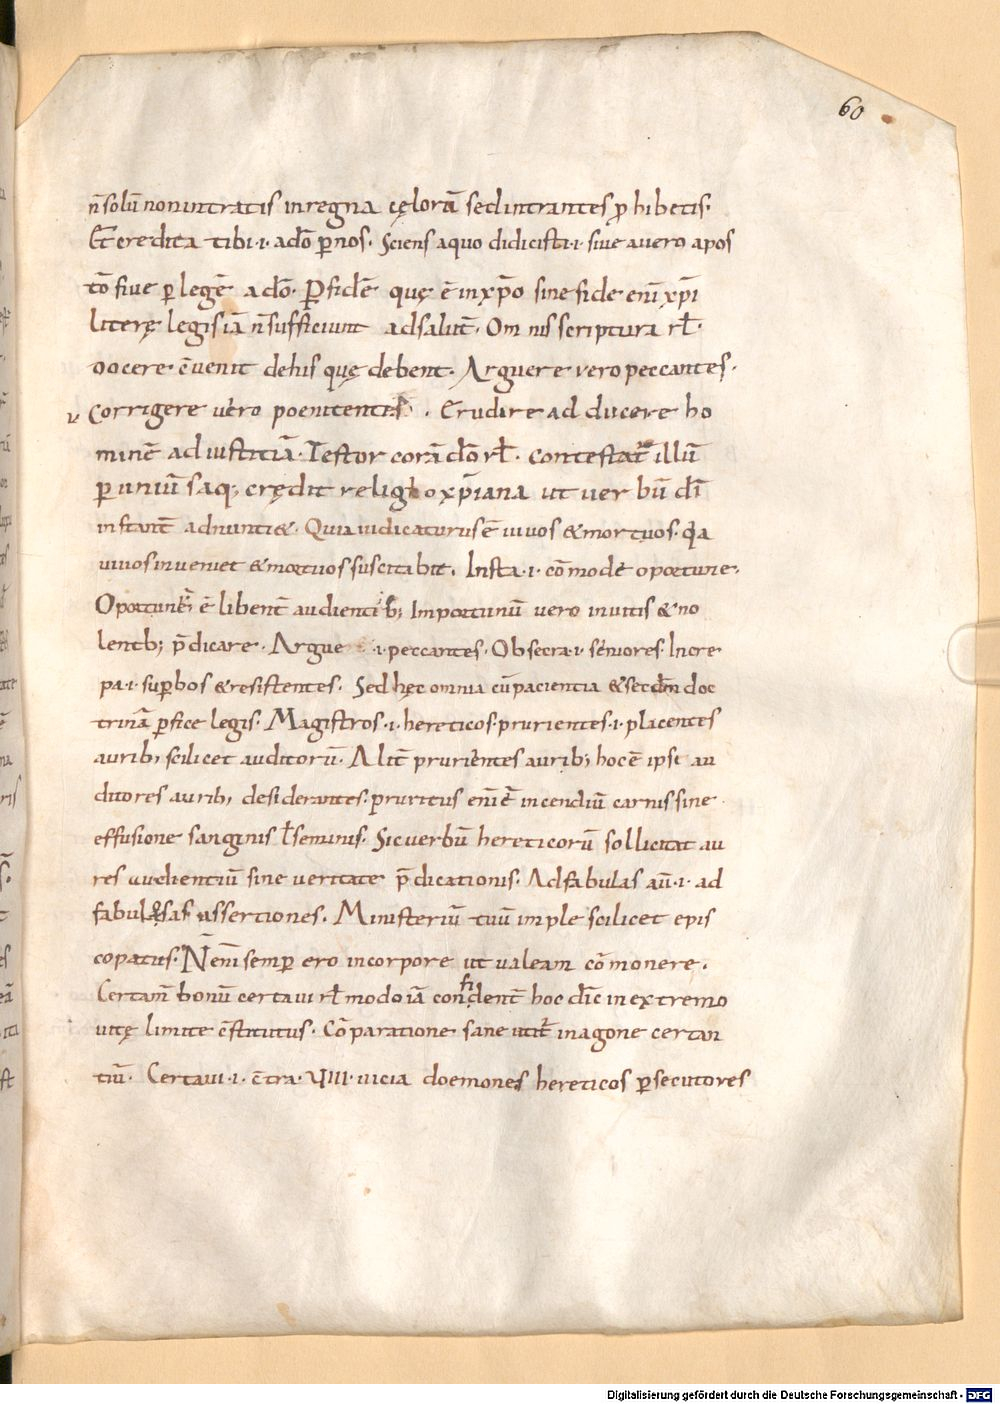 60
n̄ solū non intratis in regna cęlorā sed intrantes ꝓhibetis.
Et credita tibi .i. a dō ꝑ nos. Sciens a quo didicisti .i. sive a vero apos
tō sive ꝑ legē a dō. Ꝑ fidē quę ē in xp̄o sine fide enī xp̄i
literę legis iā n̄ sufficiunt ad salut̄. Omnis scriptura rł.
docere c̄venit de his quę debent. Arguere vero peccantes.
Corrigere vero poenitentes. Erudire adducere ho
minē ad iustitiā. Testor corā dō rł. contestat̄ illū
ꝑ uniū saq; crędit religio xp̄iana ut verbū dī
instant̄ adnuntiet. Quia iudicaturus ē vivos & mortuos. qa
vivos inveniet & mortuos suscitabit. Insta .i. cōmode oportune.
Oportune ē libent̄ audientib; Importunū vero invitis & no
lentib; p̄dicare. Argue .i. peccantes. Obsecra .i. seniores. Incre
pa .i. suꝑbos & resistentes. Sed hęc omnia cū paciencia & secdm doc
trinā ꝑfice legis. Magistros .i. hereticos. prurientes .i. placentes
aurib; scilicet auditorū. Alit̄ prurientes aurib; hoc ē ipsi au
ditores aurib; desiderantes. pruritus enī ē incendiū carnis sine
effusione sanginis ł seminis. Sic verbū hereticorū sollicitat au
res audientiū sine veritate p̄dicationis. Ad fabulas aū .i. ad
fabulosas assertiones. Ministeriū tuū imple scilicet epis
copatus. N̄ enī semꝑ ero in corpore ut valeam cōmonere.
Certam̄ bonū certavi rł modo iā confident̄ hoc dīc in extremo
vitę limite c̄stitutus. Cōparatione sane utit̄ in agone certan
tiū. Certavi .i. c̄tra .VIII. vicia doemones hereticos ꝑsecutores
Digitalisierung gefördert durch die Deutsche Forschungsgemeinschaft - DFG